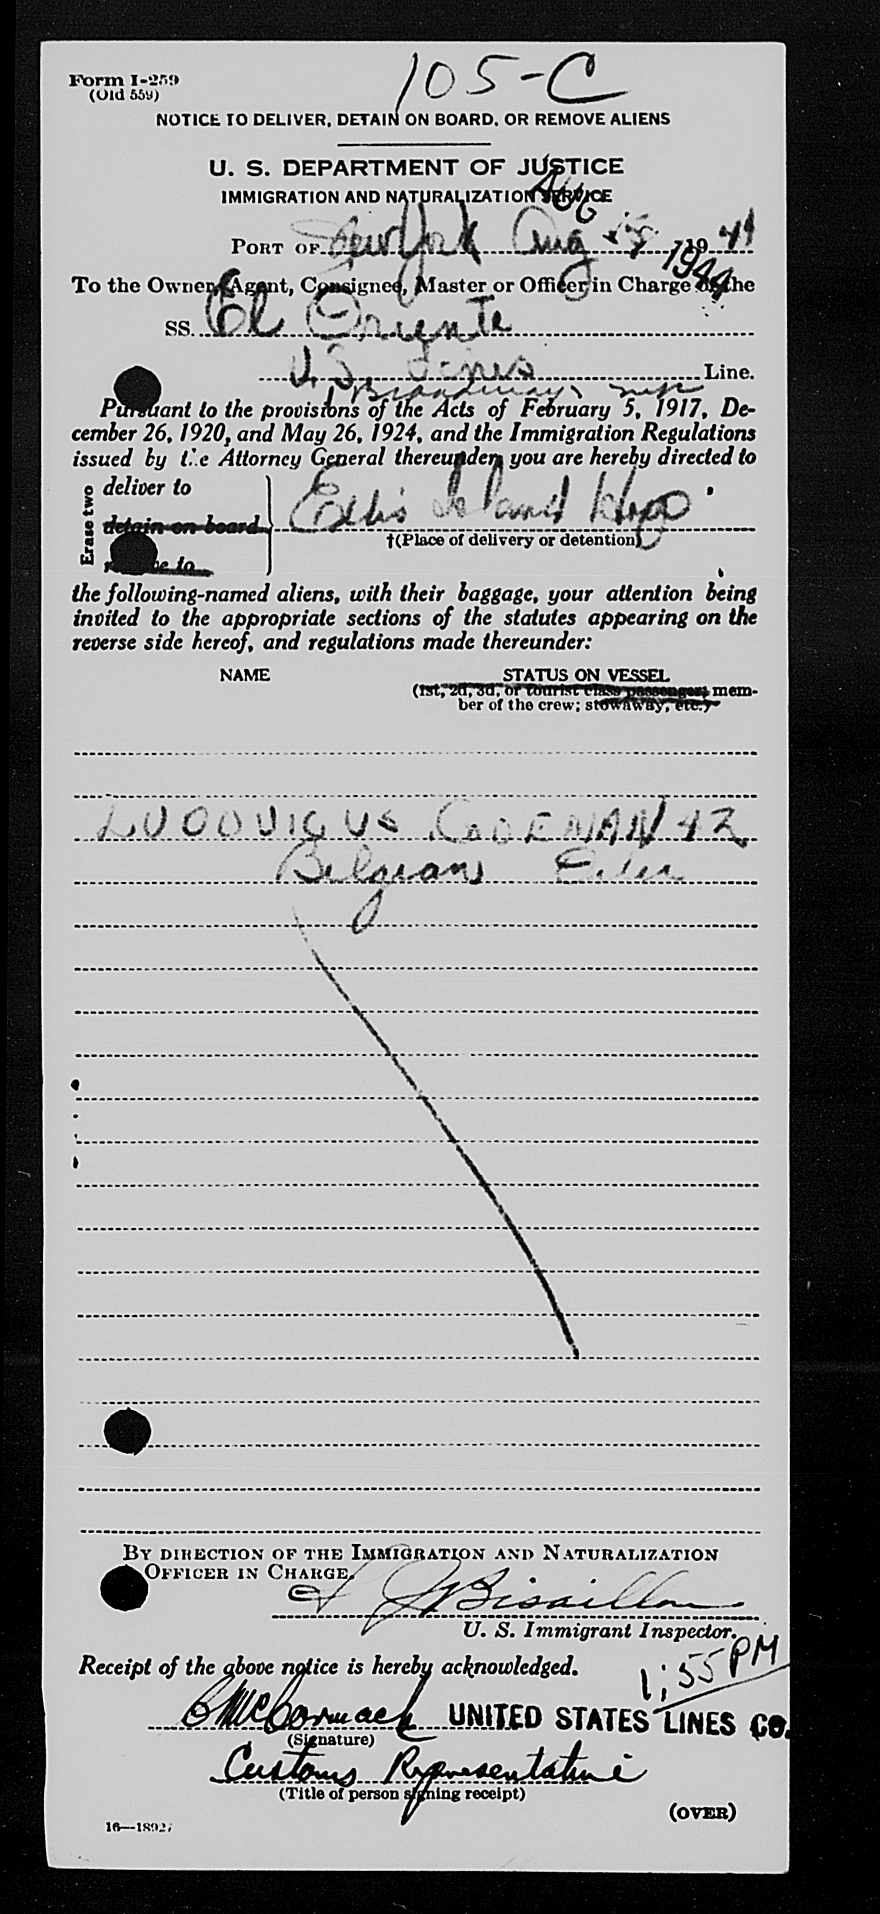 105-C
Form I-259
(Old 559)
NOTICE TO DELIVER, DETAIN ON BOARD, OR REMOVE ALIENS
U. S. DEPARTMENT OF JUSTICE
IMMIGRATION AND NATURALIZATION SERVICE
AUG
PORT OF New York Aug 1944
1944
To the Owner, Agent, Consignee, Master or Officer in Charge of the
SS. El Oriente
U.S. Lines Line.
1 Broadway,
Pursuant to the provisions of the Acts of February 5, 1917, De-
cember 26, 1920, and May 26, 1924, and the Immigration Regulations
issued by the Attorney General thereunder, you are hereby directed to
Erase two
deliver to
detain on board
Ellis Island Hosp.
†(Place of delivery or detention)
the following-named aliens, with their baggage, your attention being
invited to the appropriate sections of the statutes appearing on the
reverse side hereof, and regulations made thereunder:
NAME STATUS ON VESSEL
(1st, 2d, 3d, or tourist class passenger; mem-
ber of the crew; stowaway, etc.)
LUDOVICUS 42
Belgian
BY DIRECTION OF THE IMMIGRATION AND NATURALIZATION
OFFICER IN CHARGE.
J Bisaillon
U. S. Immigrant Inspector.
Receipt of the above notice is hereby acknowledged.
1:55 PM
McCormack UNITED STATES LINES CO.
(Signature)
Customs Representative
(Title of person signing receipt)
(OVER)
16—18927